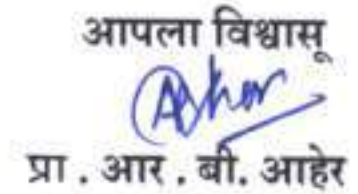 आपला विश्वासू
Aher
प्रा . आर . बी. आहेर